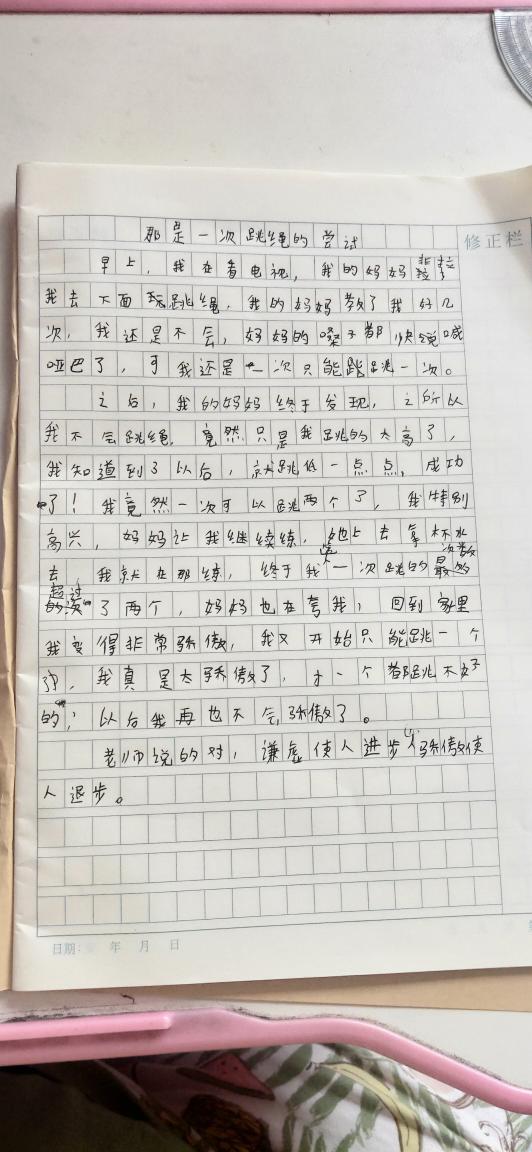 那是一次跳绳的尝试
修正栏
早上，我在看电视，我的妈妈非拉
我去下面玩跳绳，我的妈妈教了我好几
次，我还是不会，妈妈的嗓子都快说喊
哑巴了，可我还是一次只能跳一次。
之后，我的妈妈终于发现，之所以
我不会跳绳，竟然只是我跳的太高了，
我知道到了以后，就跳低一点点，成功
了！我竟然一次可以跳两个了，我特别
高兴，妈妈让我继续练，她上去拿杯水
去，我就在那练，终于我一次跳的最多
次数
超过了两个，妈妈也在夸我，回到家里
我变得非常骄傲，我又开始只能跳一个
了，我真是太骄傲了，才一个都跳不好
的，以后我再也不会骄傲了。
老师说的对，谦虚使人进步，骄傲使
人退步。
日期： 年 月 日